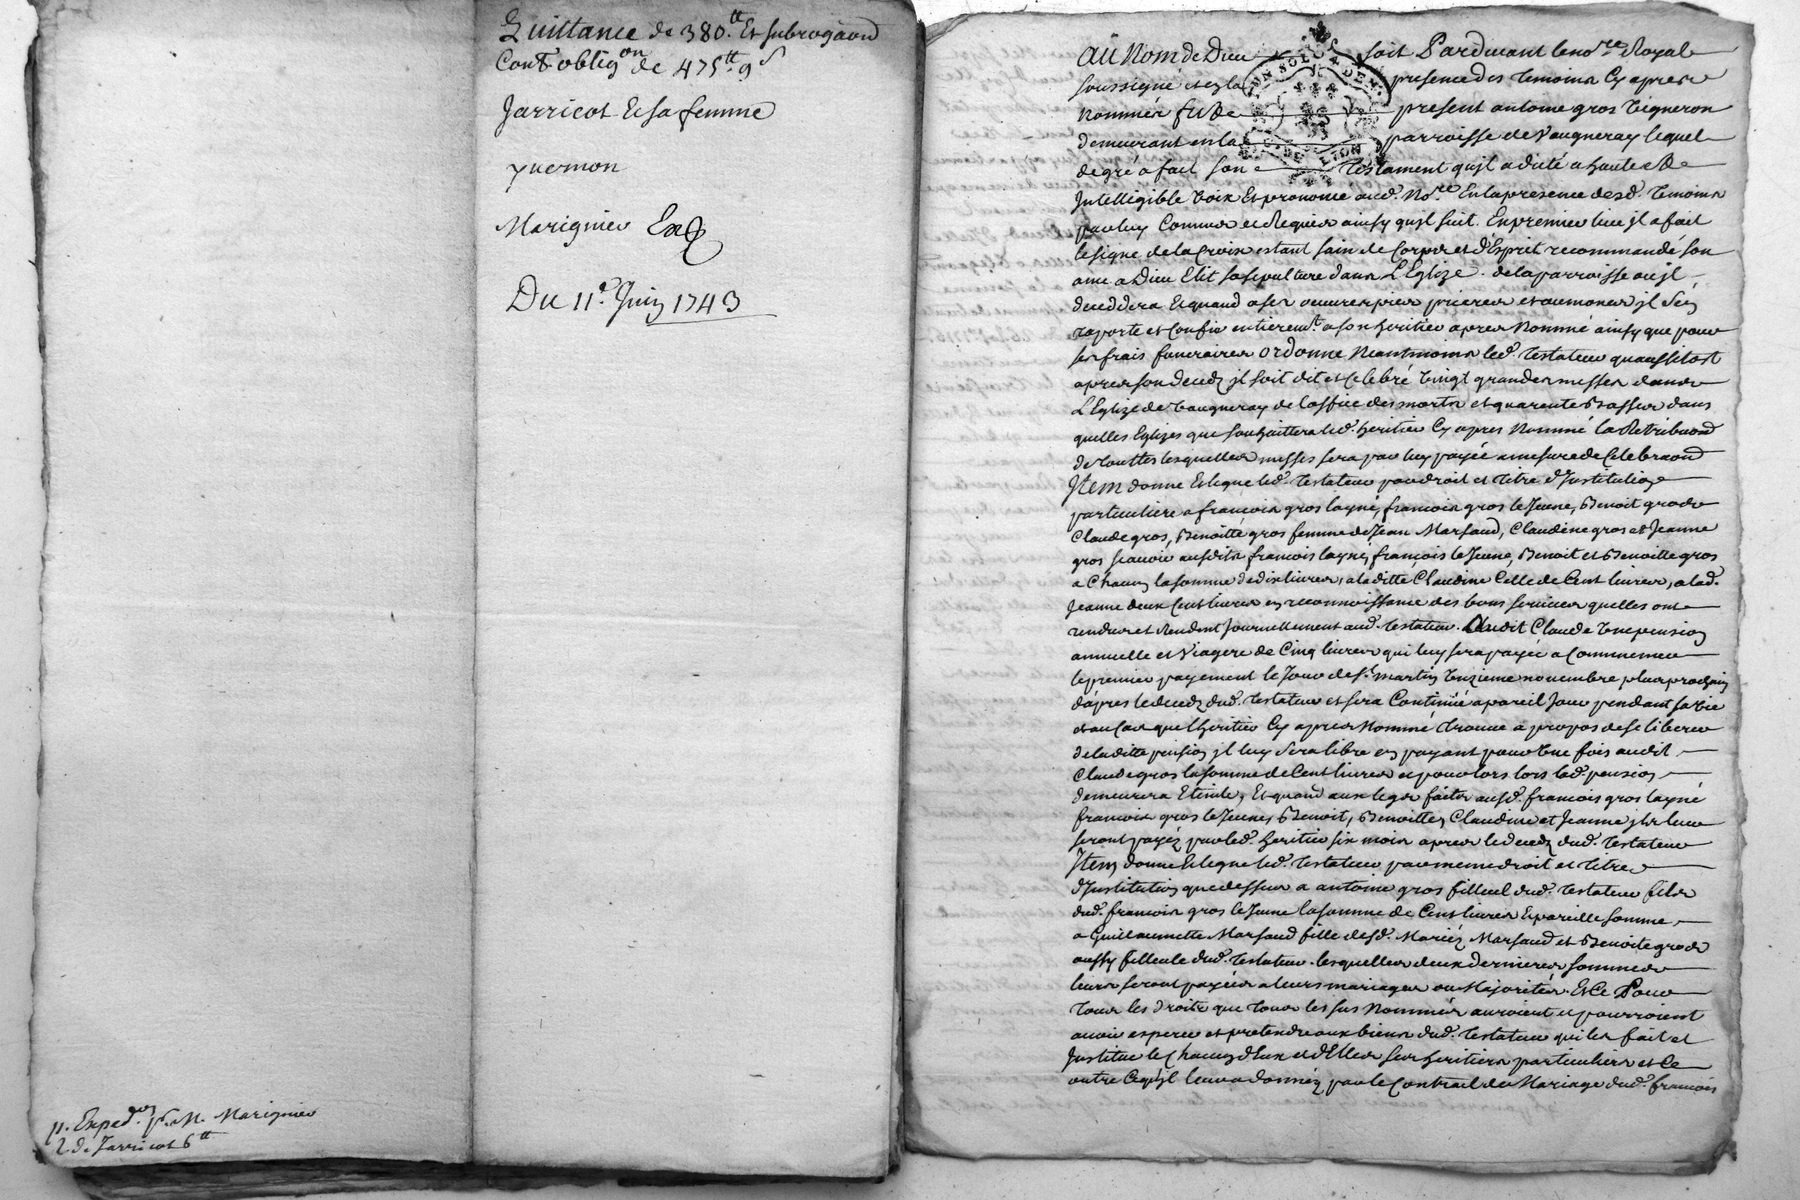 Quittance de 380.tt Et subrogaōn
Cont. obligon de 475tt 9s
Jarricot Et sa femme
yvernon
Marignier Exp
Du 11e. Juin 1743
p. Exped.on p. M. Marignier
2 d. Jarricot 6tt
Au Nom de Dieu soit Pardevant le no.re Royal
soussigné et en la presence des temoins Cy apres
nommés fut De present antoine gros vigneron
demeurant en la parroisse de Vaugneray lequel
de gré a fait son testament qu'jl a dicté a haute De
Intelligible voix Et prononcé aud. No.re En la presence desd. temoins
par luy Connus et Requis ainsy qu'jl suit. En premier lieu jl a fait
le signe de la Croix estant sain de Corps et d'Esprit recommande son
ame a Dieu Elit sa sepulture dans L'Eglize de la parroisse ou jl
deceddera Et quand a ses oeuvres pies prieres et aumones jl s'en
raporte et Confie entierem.t a son heritier apres Nommé ainsy que pour
ses frais funeraires ordonne Neantmoins led. testateur qu'aussitost
apres son deceds jl soit dit et Celebré vingt grandes messes dans
L'Eglize de vaugneray de l'office des morts et quarente Basses dans
quelles Eglizes que souhaittera led. heritier Cy apres Nommé la Retribuaōn
de touttes lesquelles messes sera par luy payée a mesure de Celebraōn
Jtem donne Et legue led. testateur par droit et titre d'Institution
particuliere a francois gros l'ayné, francois gros le Jeune, Benoit gros
Claude gros, Benoitte gros femme de Jean Marsaud, Claudine gros et Jeanne
gros scavoir ausdits francois l'ayné, francois le Jeune, Benoit et Benoitte gros
a Chacun la somme de dix livres, a laditte Claudine Celle de Cent livres, a lad.
Jeanne deux Cent livres en reconnoissance des bons services qu'elles ont
rendus et Rendent Journellement aud. testateur. Audit Claude une pension
annuelle et Viagere de Cinq livres qui luy sera payée a Commencer
le premier payement le Jour de st. martin unzieme novembre plus prochain
d'apres le deceds dud. testateur et sera Continüé a pareil Jour pendant sa vie
et au Cas que l'heritier Cy apres Nommé trouve a propos de se liberer
de laditte pension jl luy sera libre en payant pour une fois audit
Claude gros la somme de Cent livres et pour lors lad. pension
demeurera Eteinte, Et quand aux legs faits ausd. francois gros l'ayné
francois gros le Jeune, Benoit, Benoitte, Claudine et Jeanne jls leur
seront payéz par led. heritier six mois apres le deceds dud. testateur
Jtem donne Et legue led. testateur par meme droit et titre
d'Institution que dessus a antoine gros filleul dud. testateur fils
dud. francois gros le Jeune la somme de Cent livres Et pareille somme
a Guillaumette Marsaud fille desd. Mariéz Marsaud et Benoite gros
aussy filleule dud. testateur. lesquelles deux dernieres sommes
leurs seront payées a leurs mariages ou Majorités. Et Ce Pour
tous les droits que tous les sus Nommés auroient et pourroient
avoir esperer et pretendre aux biens dud. testateur qui les fait et
Institue le Chacun d'Eux et d'Elles ses heritiers particuliers et Ce
outre Ce qu'jl leur a donnéz par le Contrait de Mariage dud. francois